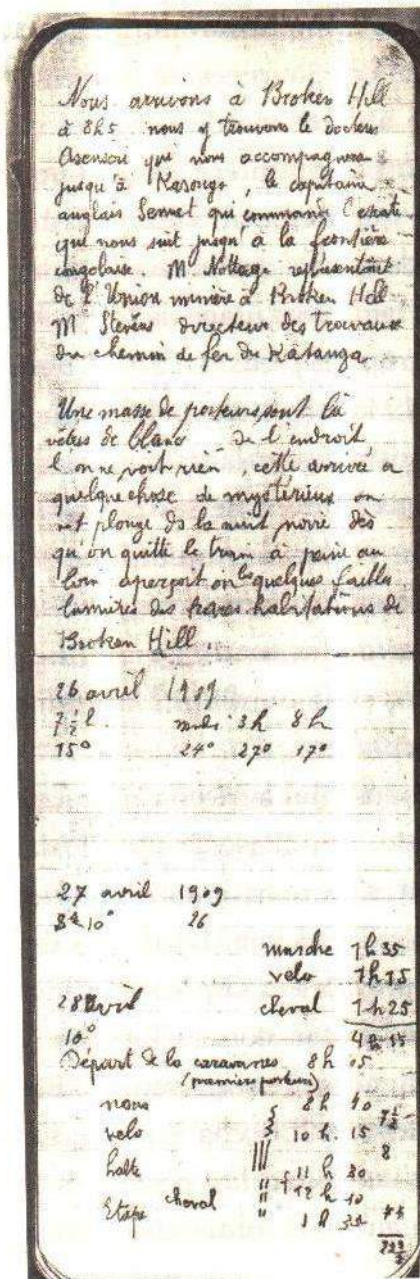 Nous arrivons à Broken Hill
à 8h5 nous y trouvons le docteur
Asensori qui nous accompagnera
jusqu'à Kasongo, le capitaine
anglais Sennet qui commande l'escorte
qui nous suit jusqu'à la frontière
congolaise. Mr Nottage représentant
de l'Union minière à Broken Hill
M. Stevens directeur des travaux
du chemin de fer du Katanga
Une masse de porteurs sont là
vêtus de blanc De l'endroit
l'on ne voit rien, cette arrivée a
quelque chose de mystérieux on
est plongé ds la nuit noire dès
qu'on quitte le train à peine au
loin aperçoit on les quelques faibles
lumières des rares habitations de
Broken Hill.
26 avril 1909
7 1/2 h. midi 3h 8h
15° 24° 27° 17°
27 avril 1909
10° 26
marche 1h35
velo 1h15
28 avril cheval 1h25
10° 4h15
Départ de la caravanes 8h 05
(premiers porteurs)
nous 8h 40
velo 10h. 15
8
halte 11h 30
cheval 12h 10
Etape 1h 35